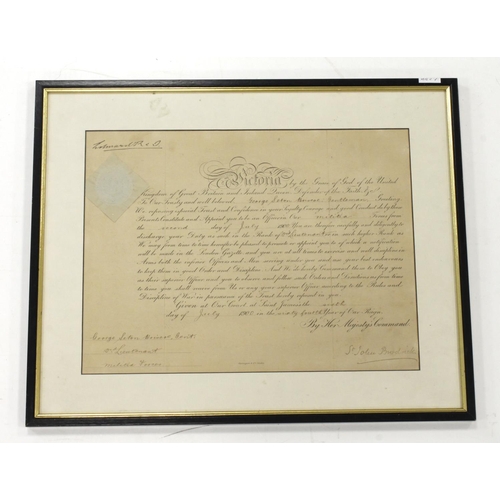 Victoria by the Grace of God of the United
Kingdom of Great Britain and Ireland Queen Defender of the Faith &c
To Our Trusty and well beloved George Gentleman Greeting
We reposing especial Trust and Confidence in your Loyalty Courage and good Conduct do by these
Presents Constitute and Appoint you to be an Officer in Our Militia Forces from
the second day of July You are therefore carefully and diligently to
discharge your Duty as such in the Rank of 2nd Lieutenant or in such higher Rank as
We may from time to time hereafter be pleased to promote or appoint you to of which a notification
will be made in the London Gazette and you are at all times to exercise and well discipline in
Arms both the inferior Officers and Men serving under you and use your best endeavours
to keep them in good Order and Discipline. And We do hereby Command them to Obey you
as their superior Officer and you to observe and follow such Orders and Directions as from time
to time you shall receive from Us or any your superior Officer according to the Rules and
Discipline of War in pursuance of the Trust hereby reposed in you
Given at Our Court at Saint James's the
day of July 1900 in the Year of Our Reign
By Her Majesty's Command
George
2nd Lieutenant
Militia Forces